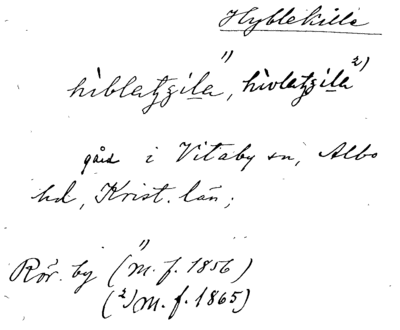 Hyblekilla
hìblatʒila¹⁾, hìvlatʒila²⁾
gård i Vitaby sn, Albo
hd, Krist. län;
Rör. by (¹⁾ m. f. 1856)
(²⁾ m. f. 1865)